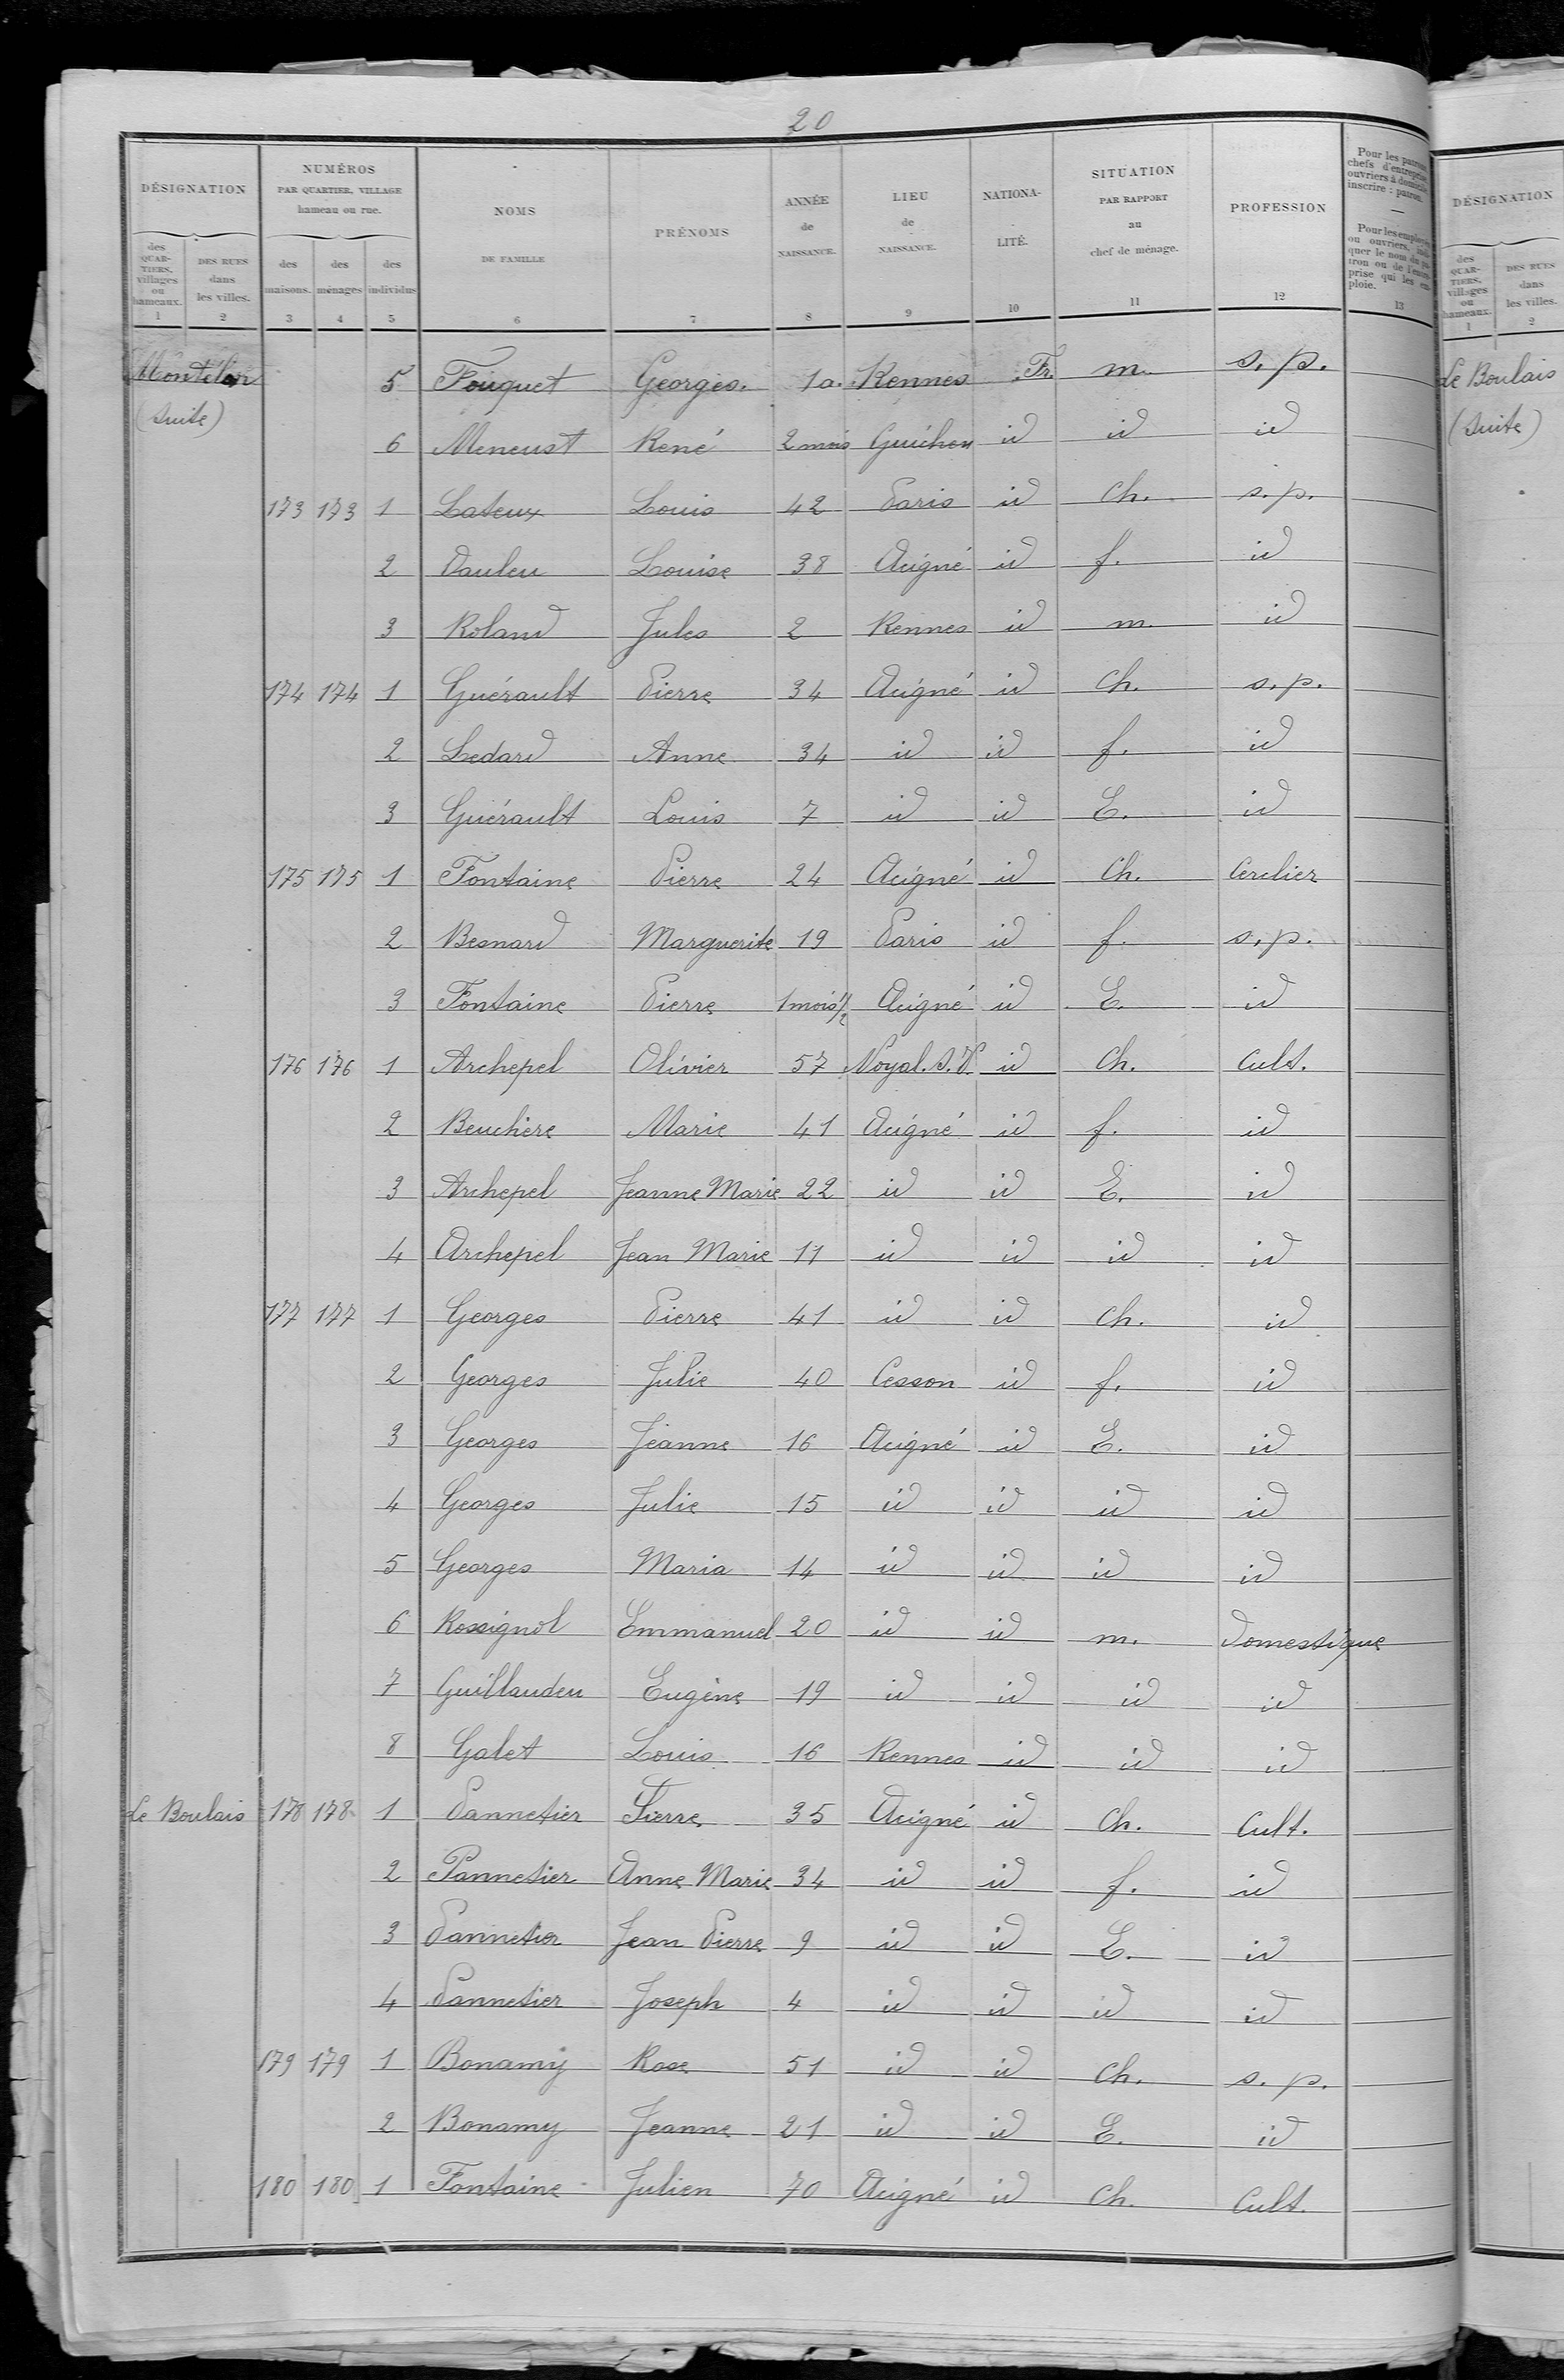 20
DÉSIGNATION
NUMÉROS
PAR QUARTIER, VILLAGE
hameau ou rue.
NOMS
DE FAMILLE
PRÉNOMS
ANNÉE
de
NAISSANCE.
LIEU
de
NAISSANCE.
NATIONA-
LITÉ.
SITUATION
PAR RAPPORT
au
chef de ménage.
PROFESSION
Pour les patrons
chefs d'entreprise
ouvriers à domicile
inscrire : patron.
Pour les employés
ou ouvriers, indi-
quer le nom du pa-
tron ou de l'entre-
prise qui les em-
ploie.
des
QUAR-
TIERS,
villages
ou
hameaux.
DES RUES
dans
les villes.
des
maisons.
des
ménages
des
individus
1 2 3 4 5 6 7 8 9 10 11 12 13
Montélan 5 Fouquet Georges. 1a. Rennes Fr. m. s.p.
(suite)
6 Meneust René 2 mois Guichen id id id
173 173 1 Lateux Louis 42 Paris id Ch. s.p.
2 Pauleu Louise 38 Acigné id f. id
3 Roland Jules 2 Rennes id m. id
174 174 1 Guérault Pierre 34 Acigné id Ch. s.p.
2 Ledard Anne 34 id id f. id
3 Guérault Louis 7 id id E. id
175 175 1 Fontaine Pierre 24 Acigné id Ch. Cerclier
2 Besnard Marguerite 19 Paris id f. s.p.
3 Fontaine Pierre 1 mois 1/2 Acigné id E. id
176 176 1 Archepel Olivier 57 Noyal.s.V. id Ch. Cult.
2 Beuchère Marie 41 Acigné id f. id
3 Archepel Jeanne Marie 22 id id E. id
4 Archepel Jean Marie 11 id id id id
177 177 1 Georges Pierre 41 id id Ch. id
2 Georges Julie 40 Cesson id f. id
3 Georges Jeanne 16 Acigné id E. id
4 Georges Julie 15 id id id id
5 Georges Maria 14 id id id id
6 Rossignol Emmanuel 20 id id m. Domestique
7 Guillaudeu Eugène 19 id id id id
8 Galet Louis 16 Rennes id id id
Le Boulais 178 178 1 Pannetier Pierre 35 Acigné id Ch. Cult.
2 Pannetier Anne Marie 34 id id f. id
3 Pannetier Jean Pierre 9 id id E. id
4 Pannetier Joseph 4 id id id id
179 179 1 Bonamy Rose 51 id id Ch. s.p.
2 Bonamy Jeanne 21 id id E. id
180 180 1 Fontaine Julien 70 Acigné id Ch. Cult.
DÉSIGNATION
des
QUAR-
TIERS,
villages
ou
hameaux.
DES RUES
dans
les villes.
1 2
Le Boulais
(suite)